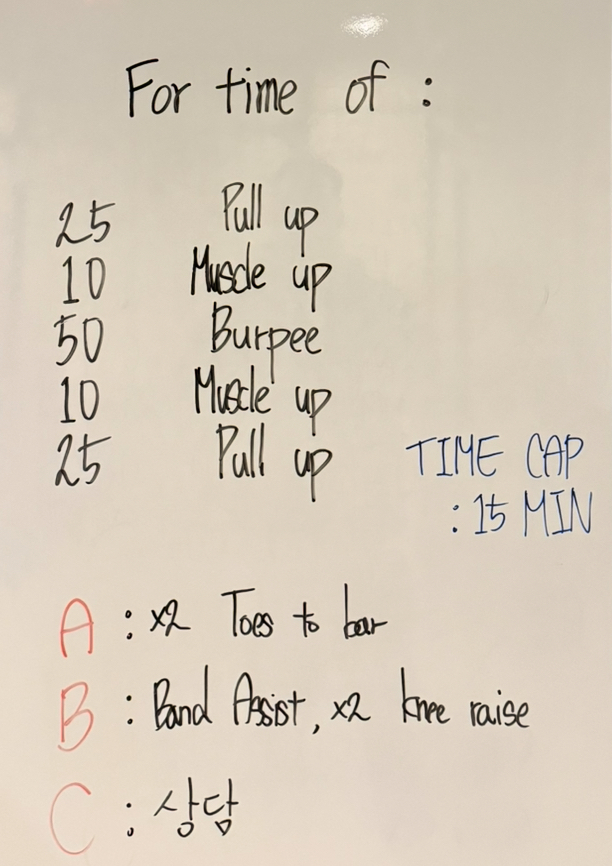 For time of :
25 Pull up
10 Muscle up
50 Burpee
10 Muscle up
25 Pull up
TIME CAP
: 15 MIN
A : x2 Toes to bar
B : Band Assist, x2 knee raise
C : 상담